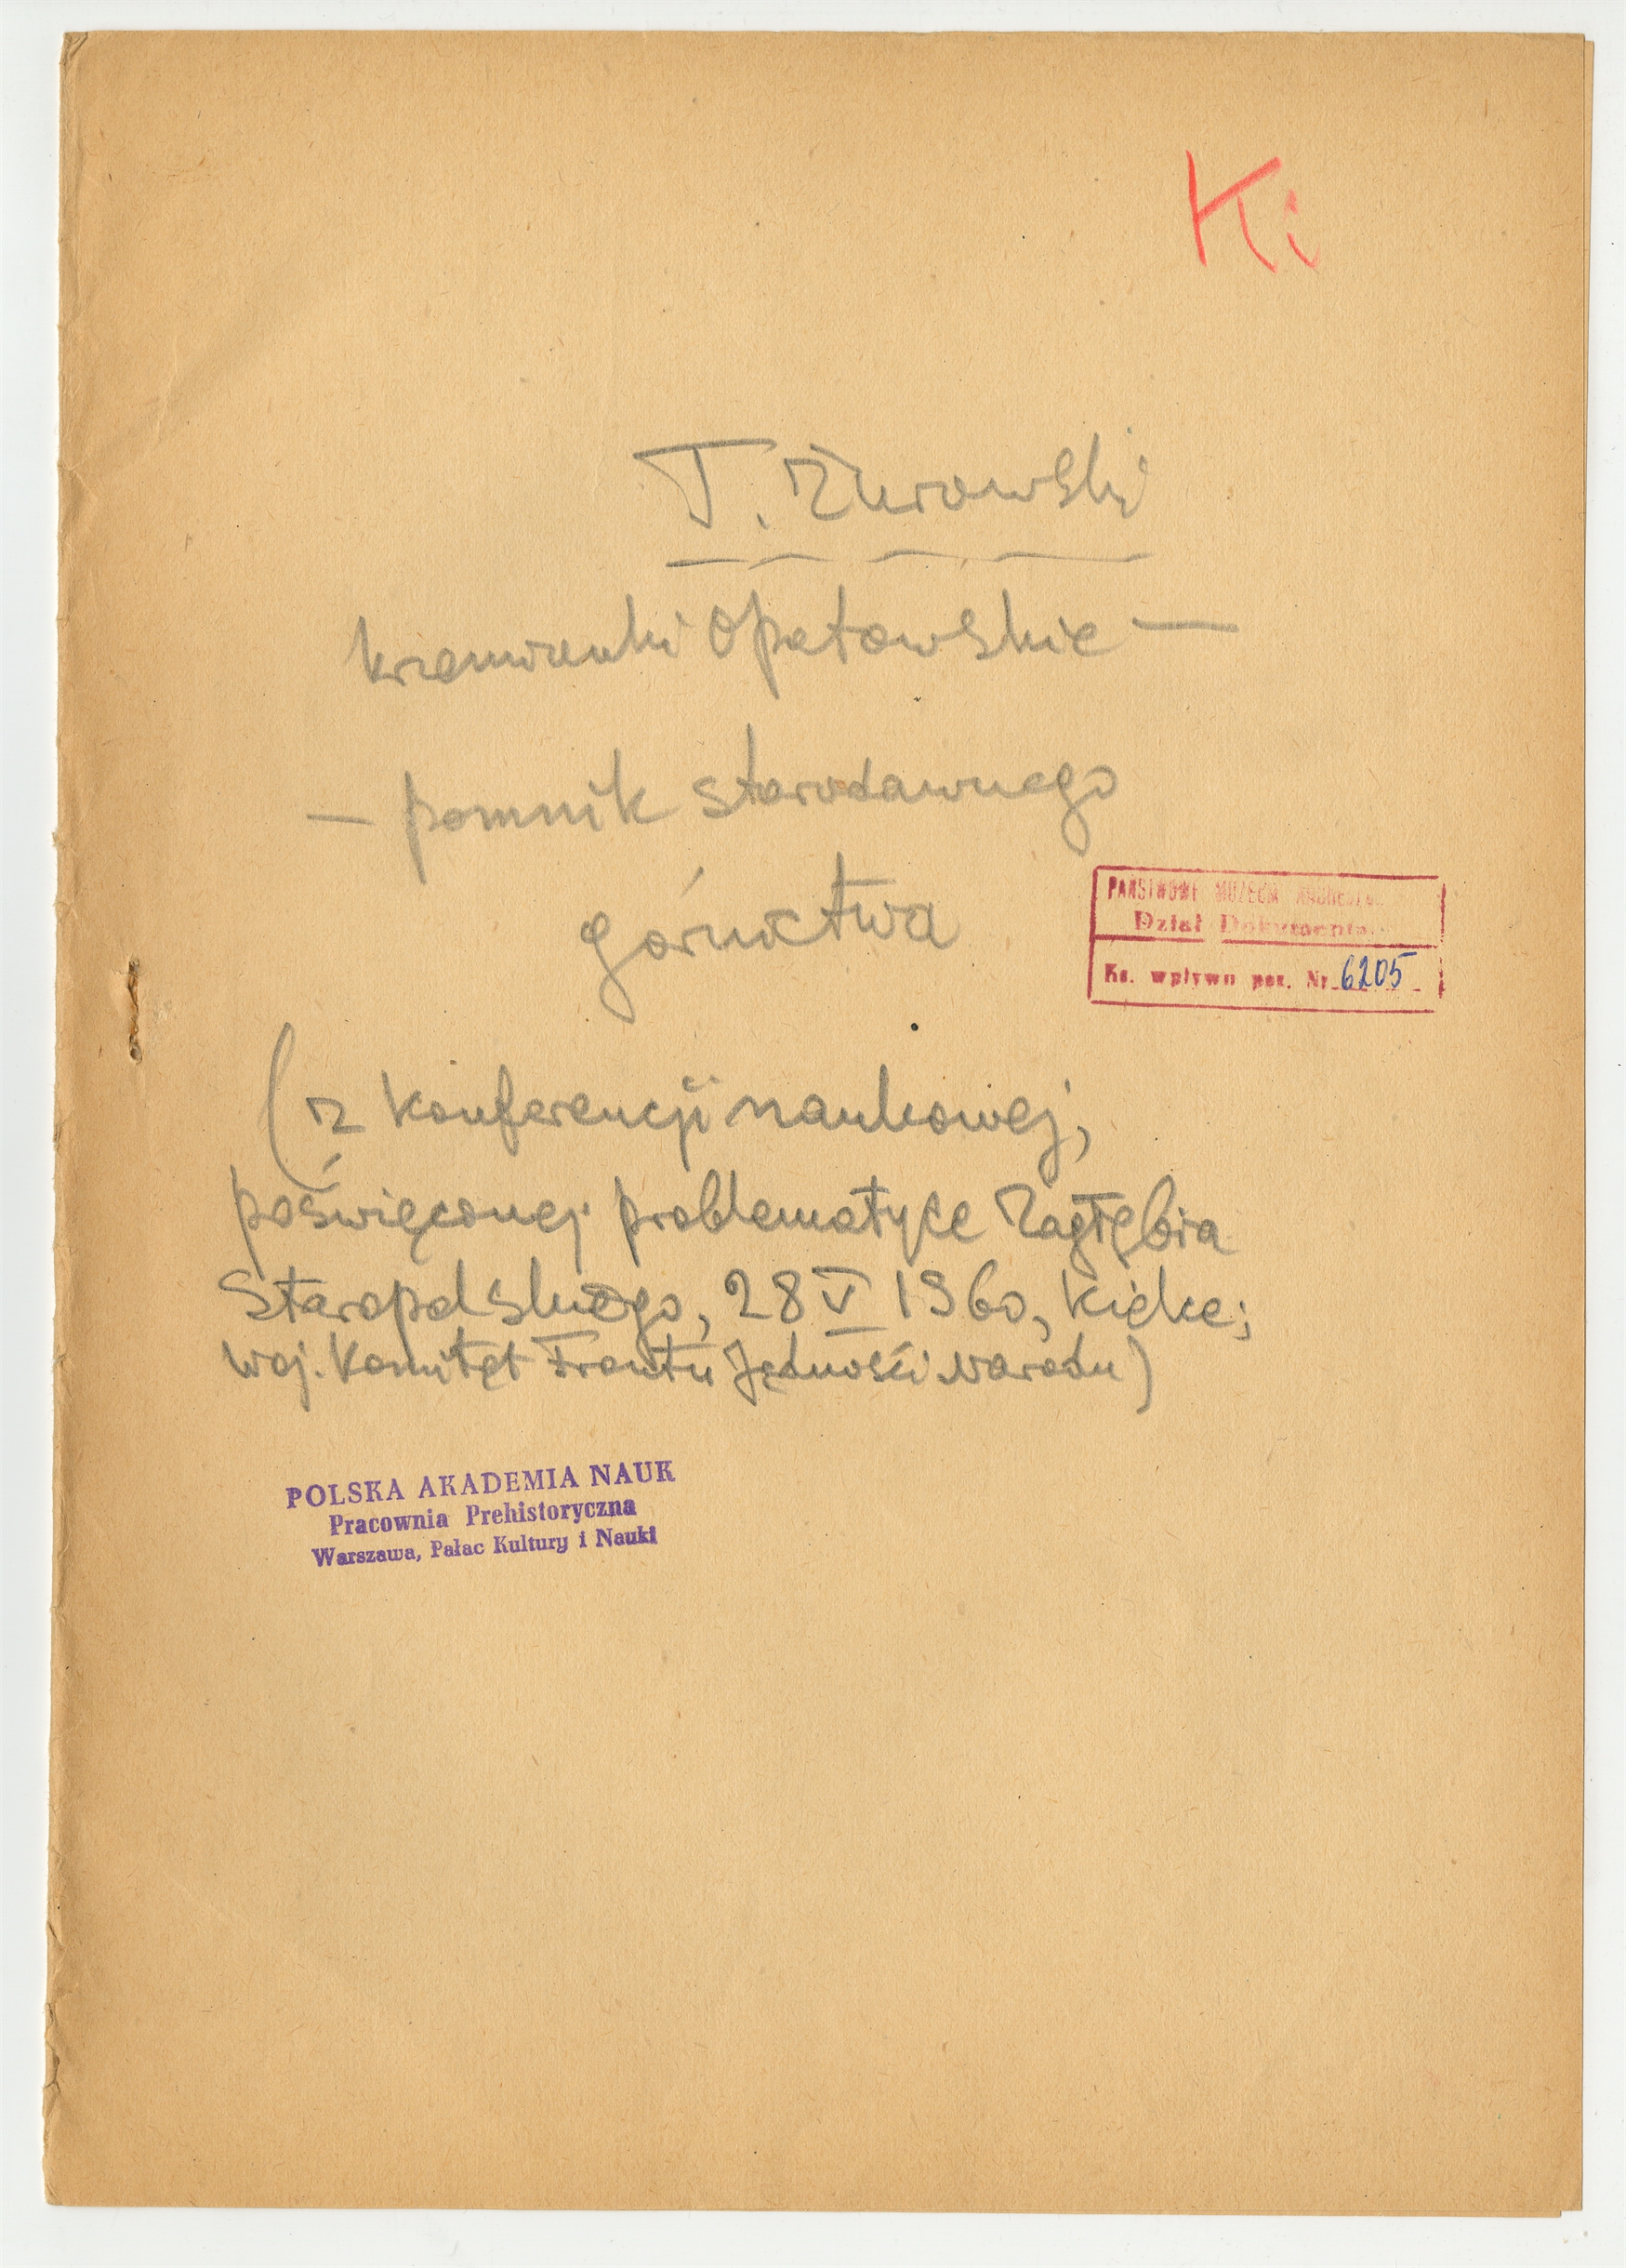 Ki
T. Żurowski
krzemionki Opatowskie —
— pomnik starodawnego
górnictwa
PAŃSTWOWE MUZEUM
Dział
Ks. wpływu poz. Nr 6205
(z konferencji naukowej,
poświęconej problematyce Zagłębia
Staropolskiego, 28 V 1960, Kielce;
Woj. Komitet Frontu Jedności Narodu)
POLSKA AKADEMIA NAUK
Pracownia Prehistoryczna
Warszawa, Pałac Kultury i Nauki